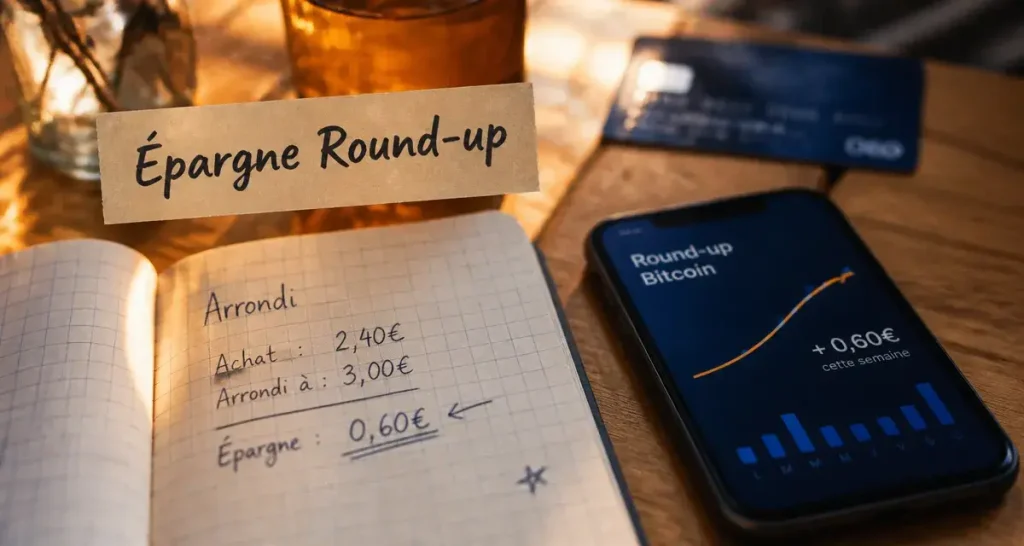 Épargne Round-up
Arrondi
Achat : 2,40€
Arrondi à : 3,00€
Épargne : 0,60€
Round-up
Bitcoin
+ 0,60€
cette semaine